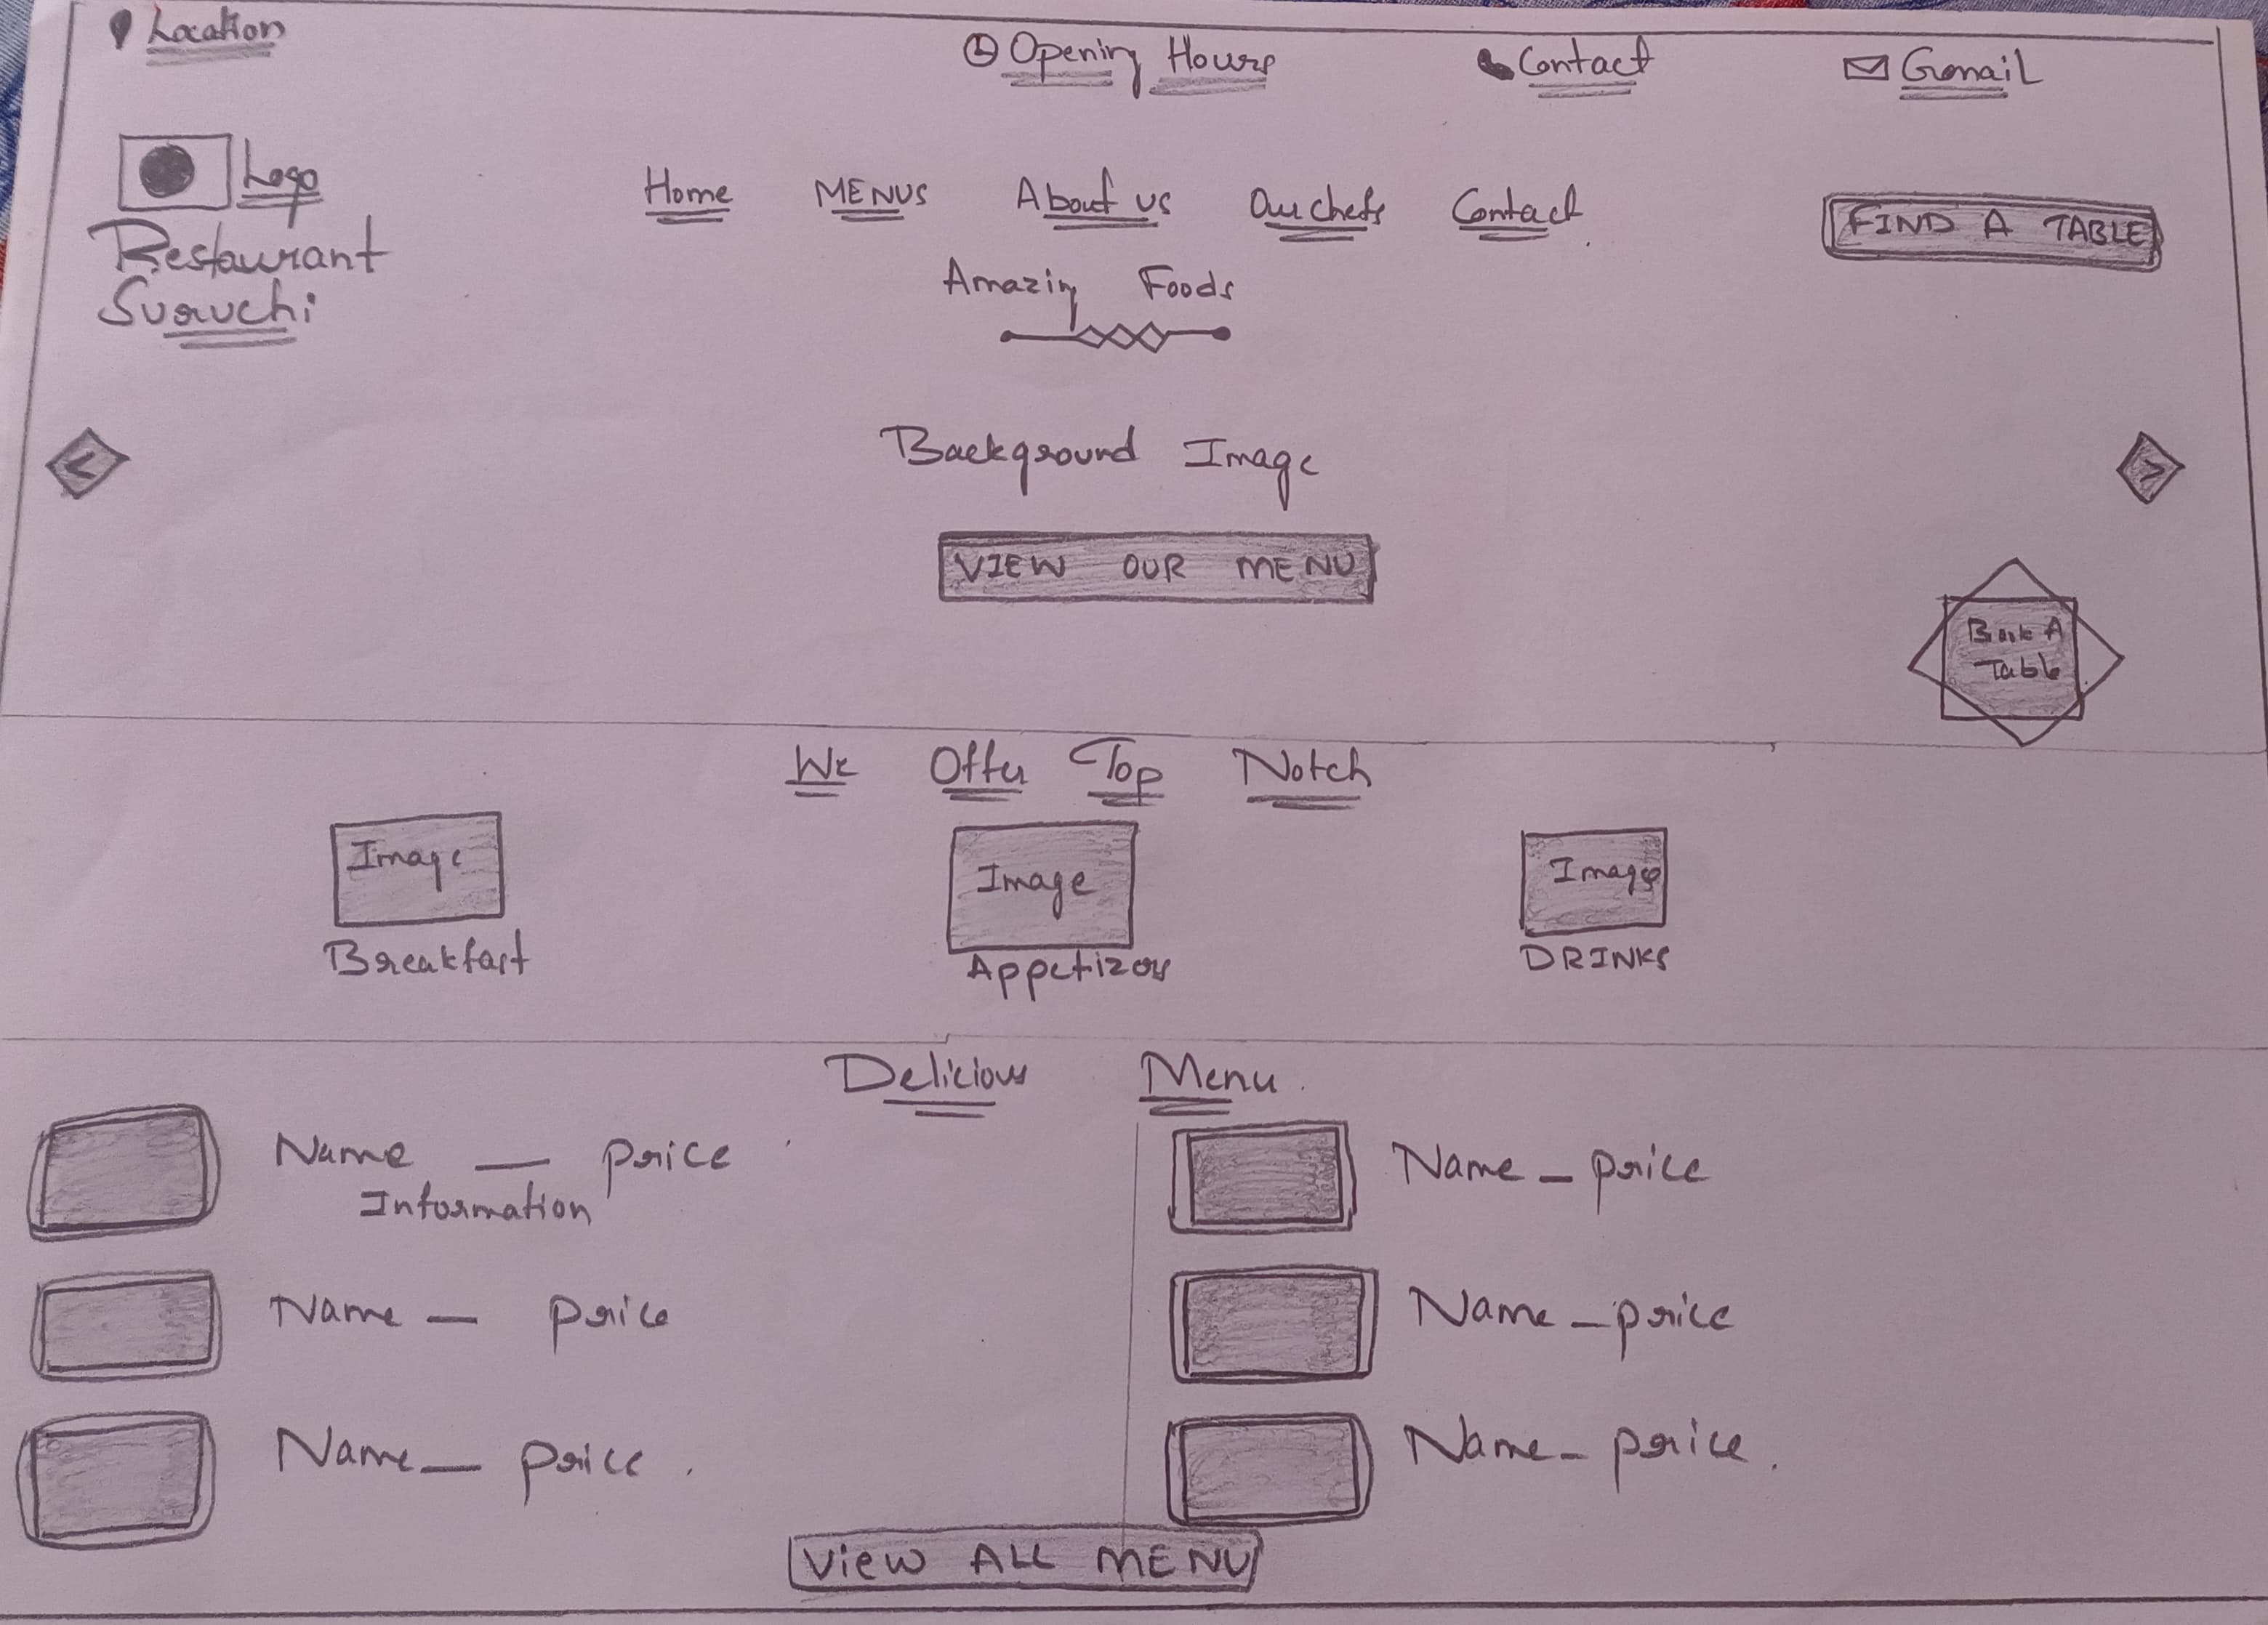 Location
Opening Hours
Contact
Gmail
Logo
Restaurant
Suruchi
Home MENUS About us Our chefs Contact
FIND A TABLE
Amazing Foods
<
Background Image
>
VIEW OUR MENU
Book A
Table
We Offer Top Notch
Image
Image
Image
Breakfast
Appetizers
DRINKS
Delicious Menu.
Name — price
Information
Name – price
Name — price
Name – price
Name — price.
Name – price.
View ALL MENU